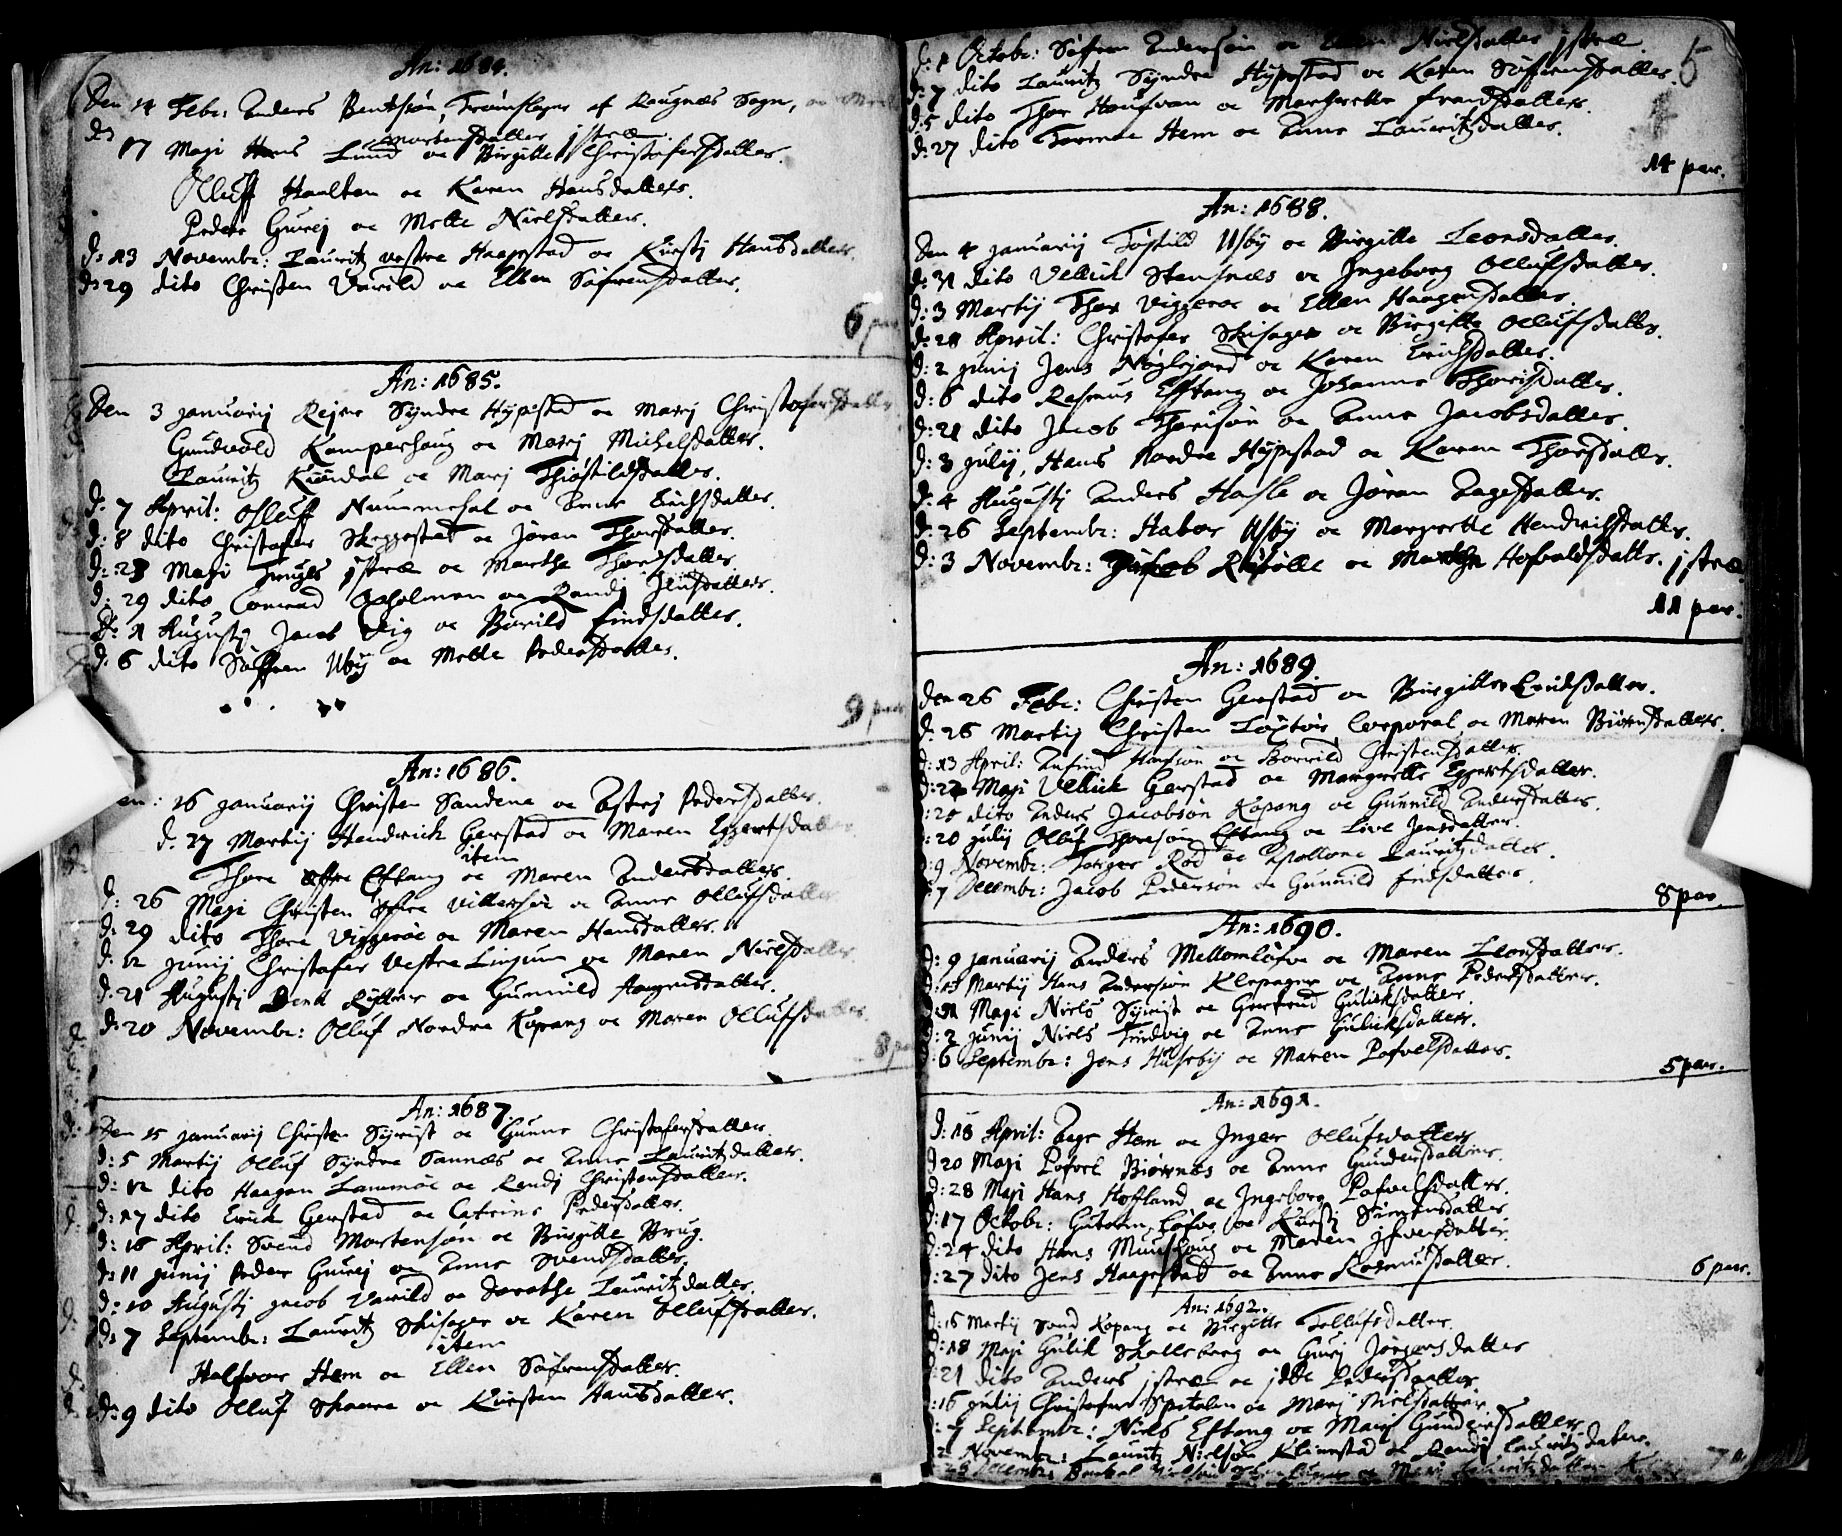 An: 1684.
Den 14 Febr: Anders Bentsøn, Tromslager af Raugnæs Sogn, oc
Mortensdatter jstræ.
17 Maji Hans Lund oc Birgitte Christofersdatter.
Olluf Haalten oc Karen Hansdatter.
Peder Gurej oc Mette Nielsdatter.
d: 13 Novembr: Lauritz vestre Haagestad oc Kirstj Hansdatter.
d: 29 dito Christen Varild oc Ellen Søfrensdatter.
6 par
An: 1685.
Den 3 januarij Rejer Syndre Hypestad oc Marj Christofersdatter.
Gundvold Kamperhaug oc Marj Michelsdatter.
Lauritz Kiøndal oc Marj Thiøstildsdatter.
d: 7 April: Olluf Nummesal oc Anne Erichsdatter.
d: 8 dito Christofer Skeggestad oc Jøren Thorsdatter.
d: 23 Maji Truls jstræ oc Marthe Thorsdatter.
d: 29 dito Conrad Oxholmen oc Randj Jensdatter.
d: 1 Augustj Jacob Vig oc Borild Findsdatter.
d: 6 dito Søffren Uby oc Mette Pedersdatter.
9 par
An: 1686.
16 januarij Christen Sandene oc Astrj Pedersdatter.
d: 27 Martij Hendrich Gerstad oc Maren Eggertsdatter
item
Thore øfre Eftang oc Maren Andersdatter.
d: 26 Maji Christen øfre Villersøe oc Anne Ollufsdatter
d: 29 dito Thore Viggerøe oc Maren Hansdatter.
d: 12 Junij Christofer Vestre Linjum oc Maren Nielsdatter
d: 21 Augustj Bent Rytter oc Gunnild Aagesdatter.
d: 20 Novembr: Olluf Nordre Kopang oc Maren Ollufsdatter.
8 par
An: 1687.
Den 15 januarij Christen Syrist oc Gunne Christofersdatter.
d: 5 Martij Olluf Syndre Sannæs oc Anne Lauritzdatter.
d: 12 dito Haagen Lammøe oc Randj Christensdatter.
d: 17 dito Erich Gerstad oc Catrine Pedersdatter.
d: 16 April: Svend Mortensøn oc Birgitte Brug.
d: 11 junij Peder Gurej oc Anne Svendsdatter.
d: 10 Augustj jacob Varild oc Dorothe Lauritzdatter.
d: 7 Septembr: Lauritz Skisager oc Karen Ollufsdatter.
item
Halfvor Hem oc Ellen Søfrensdatter.
d: 9 dito Olluf Skaare oc Kirsten Hansdatter.
5
d: 1 Octobr: Søfren Andersøn oc Ellen Nielsdatter jstræ.
d: 7 dito Lauritz Syndre Hypestad oc Karen Søfrensdatter.
d: 5 dito Thor Haugvan oc Margrette Frandsdatter.
d: 27 dito Tormoe Hem oc Anne Lauritzdatter.
14 par.
An: 1688.
Den 4 januarij Tøstild Usby oc Birgitte Leonsdatter.
d: 31 dito Vellich Stensnæs oc Ingeborg Ollufsdatter.
d: 3 Martij Thor Viggerøe oc Ellen Haagensdatter.
d: 21 April: Christofer Skisager oc Birgitte Ollufsdatter.
d: 2 junij Jens Nøglegard oc Karen Erichsdatter.
d: 6 dito Rasmus Eftang oc Johanne Thorisdatter.
d: 21 dito Jacob Thorisøn oc Anne Jacobsdatter.
d: 3 julij, Hans Nordre Hypestad oc Karen Thorsdatter.
d: 4 Augustj Anders Hasle oc Jøran Aagesdatter.
d: 26 Septembr: Habor Usby oc Margrette Hendrichsdatter.
d: 3 Novembr: Jacob Risølle oc Marthe Hofvaldsdatter. jstræ.
11 par.
An: 1689.
den 26 Febr: Christen Gerstad oc Birgitte Erichsdatter.
d: 26 Martij Christen Løgtør Corporal oc Maren Biørnsdatter.
d: 13 April: Anfind Hansøn oc Borrild Christensdatter.
d: 22 Maji Vellich Gerstad oc Margrette Eggertsdatter.
: 20 dito Anders Jacobsøn Kopang oc Gunnild Andersdatter.
: 20 julij Olluf Thoresøn Eftang oc Live Jensdatter.
: 9 Novembr: Torger Rød oc Apollone Lauritzdatter.
: 7 Decembr: Jacob Pedersøn oc Gunnild Findsdatter.
8 par.
An: 1690.
d: 9 januarij Anders Mellomløfve oc Maren Leonsdatter.
d: 13 Martij Hans Andersøn Klepager oc Anne Pedersdatter.
d: 11 Maji Niels Syrist oc Gertrud Gulichsdatter.
d: 2 junij Niels Tindvig oc Anne Gulichsdatter.
: 6 Septembr: Jens Huseby oc Maren Pofvelsdatter.
5 par.
An: 1691.
d: 18 April: Aage Hem oc Inger Ollufsdatter
d: 20 Maji Pofvel Biørnæs oc Anne Gundersdatter.
d: 28 Maji Hans Hofland oc Ingeborg Pofvelsdatter.
d: 17 Octobr: Gutorm Løfve oc Kirstj Simensdatter
d: 24 dito Hans Muushoug oc Maren jfversdatter.
d: 27 dito Jens Haagestad oc Anne Rasmusdatter.
6 par.
An: 1692.
d: 16 Martij Sond Kopang oc Birgitte Tollufsdatter.
: 18 Maji Gulich Skallebarg oc Gurj Jørgensdatter
: 21 dito Anders jstræ oc jdde Pedersdatter
: 16 julij Christofer Spetalen oc Marj Nielsdatter
: 7 Septembr: Niels Eftang oc Marj Gundersdatter
2 Novembr: Lauritz Nielsøn Klinestad oc Randj Lauritzdatter.
Decembr: oc Marj Lauritzdatter
7